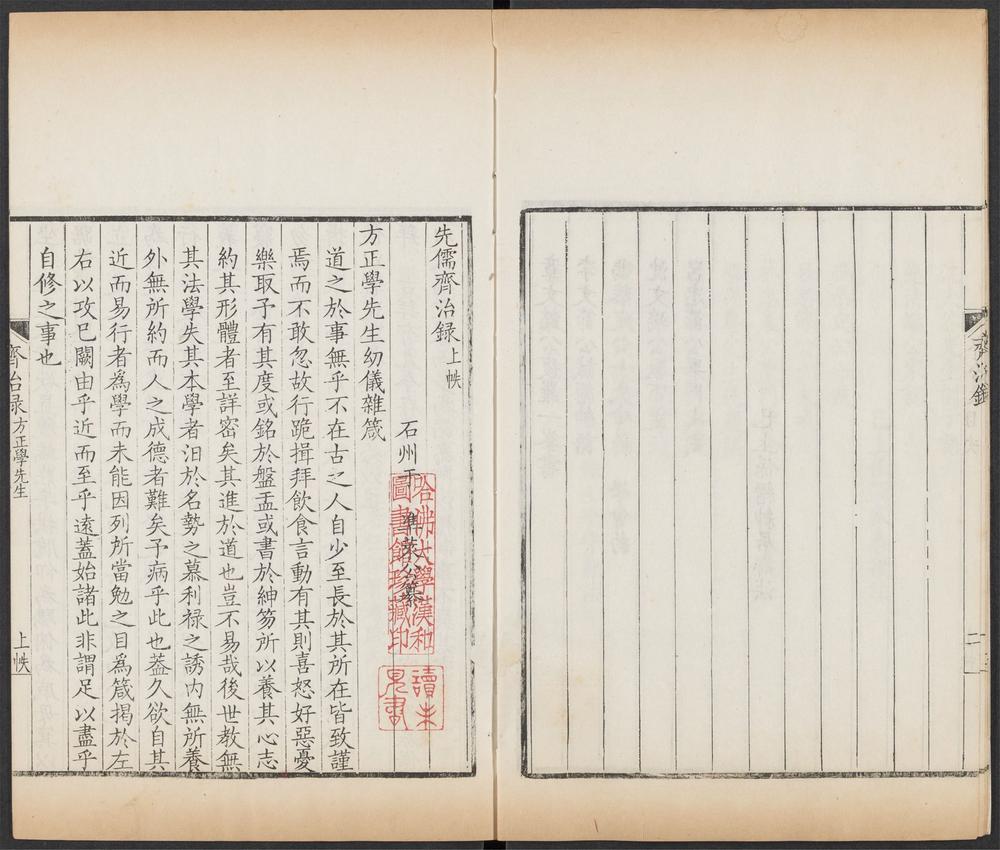 齊治錄
二
先儒齊治録 上帙
石州于 準萊公纂
哈佛大學漢和
圖書館珍藏印
讀未
見書
方正學先生幼儀雜箴
道之於事無乎不在古之人自少至長於其所在皆致謹
焉而不敢忽故行跪揖拜飲食言動有其則喜怒好惡憂
樂取予有其度或銘於盤盂或書於紳笏所以養其心志
約其形體者至詳密矣其進於道也豈不易哉後世教無
其法學失其本學者汩於名勢之慕利祿之誘內無所養
外無所約而人之成德者難矣予病乎此也葢久欲自其
近而易行者為學而未能因列所當勉之目為箴揭於左
右以攻已闕由乎近而至乎遠蓋始諸此非謂足以盡乎
自修之事也
齊治录 方正學先生 上帙